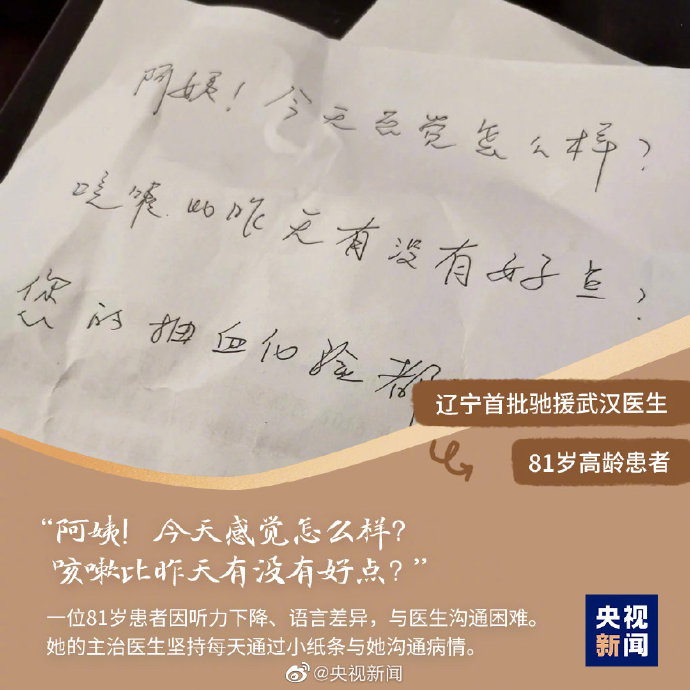 阿姨！今天感觉怎么样？
咳嗽比昨天有没有好点？
您的抽血化验都
辽宁首批驰援武汉医生
81岁高龄患者
“阿姨！今天感觉怎么样？
咳嗽比昨天有没有好点？”
一位81岁患者因听力下降、语言差异，与医生沟通困难。
她的主治医生坚持每天通过小纸条与她沟通病情。
央视
新闻
@央视新闻